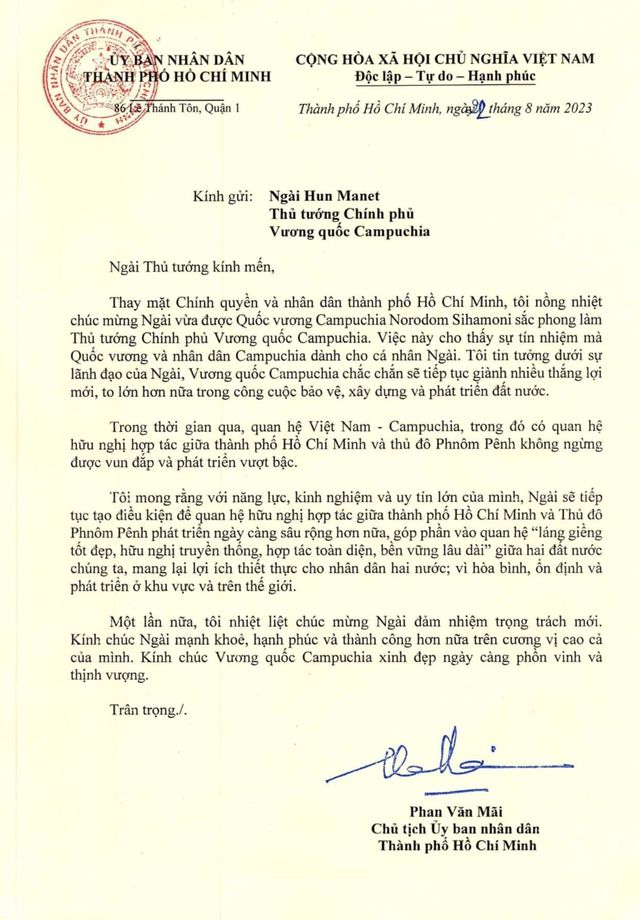 ỦY BAN NHÂN DÂN
THÀNH PHỐ HỒ CHÍ MINH
86 Lê Thánh Tôn, Quận 1
CỘNG HÒA XÃ HỘI CHỦ NGHĨA VIỆT NAM
Độc lập – Tự do – Hạnh phúc
Thành phố Hồ Chí Minh, ngày 22 tháng 8 năm 2023
Kính gửi: Ngài Hun Manet
Thủ tướng Chính phủ
Vương quốc Campuchia
Ngài Thủ tướng kính mến,
Thay mặt Chính quyền và nhân dân thành phố Hồ Chí Minh, tôi nồng nhiệt
chúc mừng Ngài vừa được Quốc vương Campuchia Norodom Sihamoni sắc phong làm
Thủ tướng Chính phủ Vương quốc Campuchia. Việc này cho thấy sự tín nhiệm mà
Quốc vương và nhân dân Campuchia dành cho cá nhân Ngài. Tôi tin tưởng dưới sự
lãnh đạo của Ngài, Vương quốc Campuchia chắc chắn sẽ tiếp tục giành nhiều thắng lợi
mới, to lớn hơn nữa trong công cuộc bảo vệ, xây dựng và phát triển đất nước.
Trong thời gian qua, quan hệ Việt Nam - Campuchia, trong đó có quan hệ
hữu nghị hợp tác giữa thành phố Hồ Chí Minh và thủ đô Phnôm Pênh không ngừng
được vun đắp và phát triển vượt bậc.
Tôi mong rằng với năng lực, kinh nghiệm và uy tín lớn của mình, Ngài sẽ tiếp
tục tạo điều kiện để quan hệ hữu nghị hợp tác giữa thành phố Hồ Chí Minh và Thủ đô
Phnôm Pênh phát triển ngày càng sâu rộng hơn nữa, góp phần vào quan hệ “láng giềng
tốt đẹp, hữu nghị truyền thống, hợp tác toàn diện, bền vững lâu dài” giữa hai đất nước
chúng ta, mang lại lợi ích thiết thực cho nhân dân hai nước; vì hòa bình, ổn định và
phát triển ở khu vực và trên thế giới.
Một lần nữa, tôi nhiệt liệt chúc mừng Ngài đảm nhiệm trọng trách mới.
Kính chúc Ngài mạnh khoẻ, hạnh phúc và thành công hơn nữa trên cương vị cao cả
của mình. Kính chúc Vương quốc Campuchia xinh đẹp ngày càng phồn vinh và
thịnh vượng.
Trân trọng./.
Phan Văn Mãi
Chủ tịch Ủy ban nhân dân
Thành phố Hồ Chí Minh